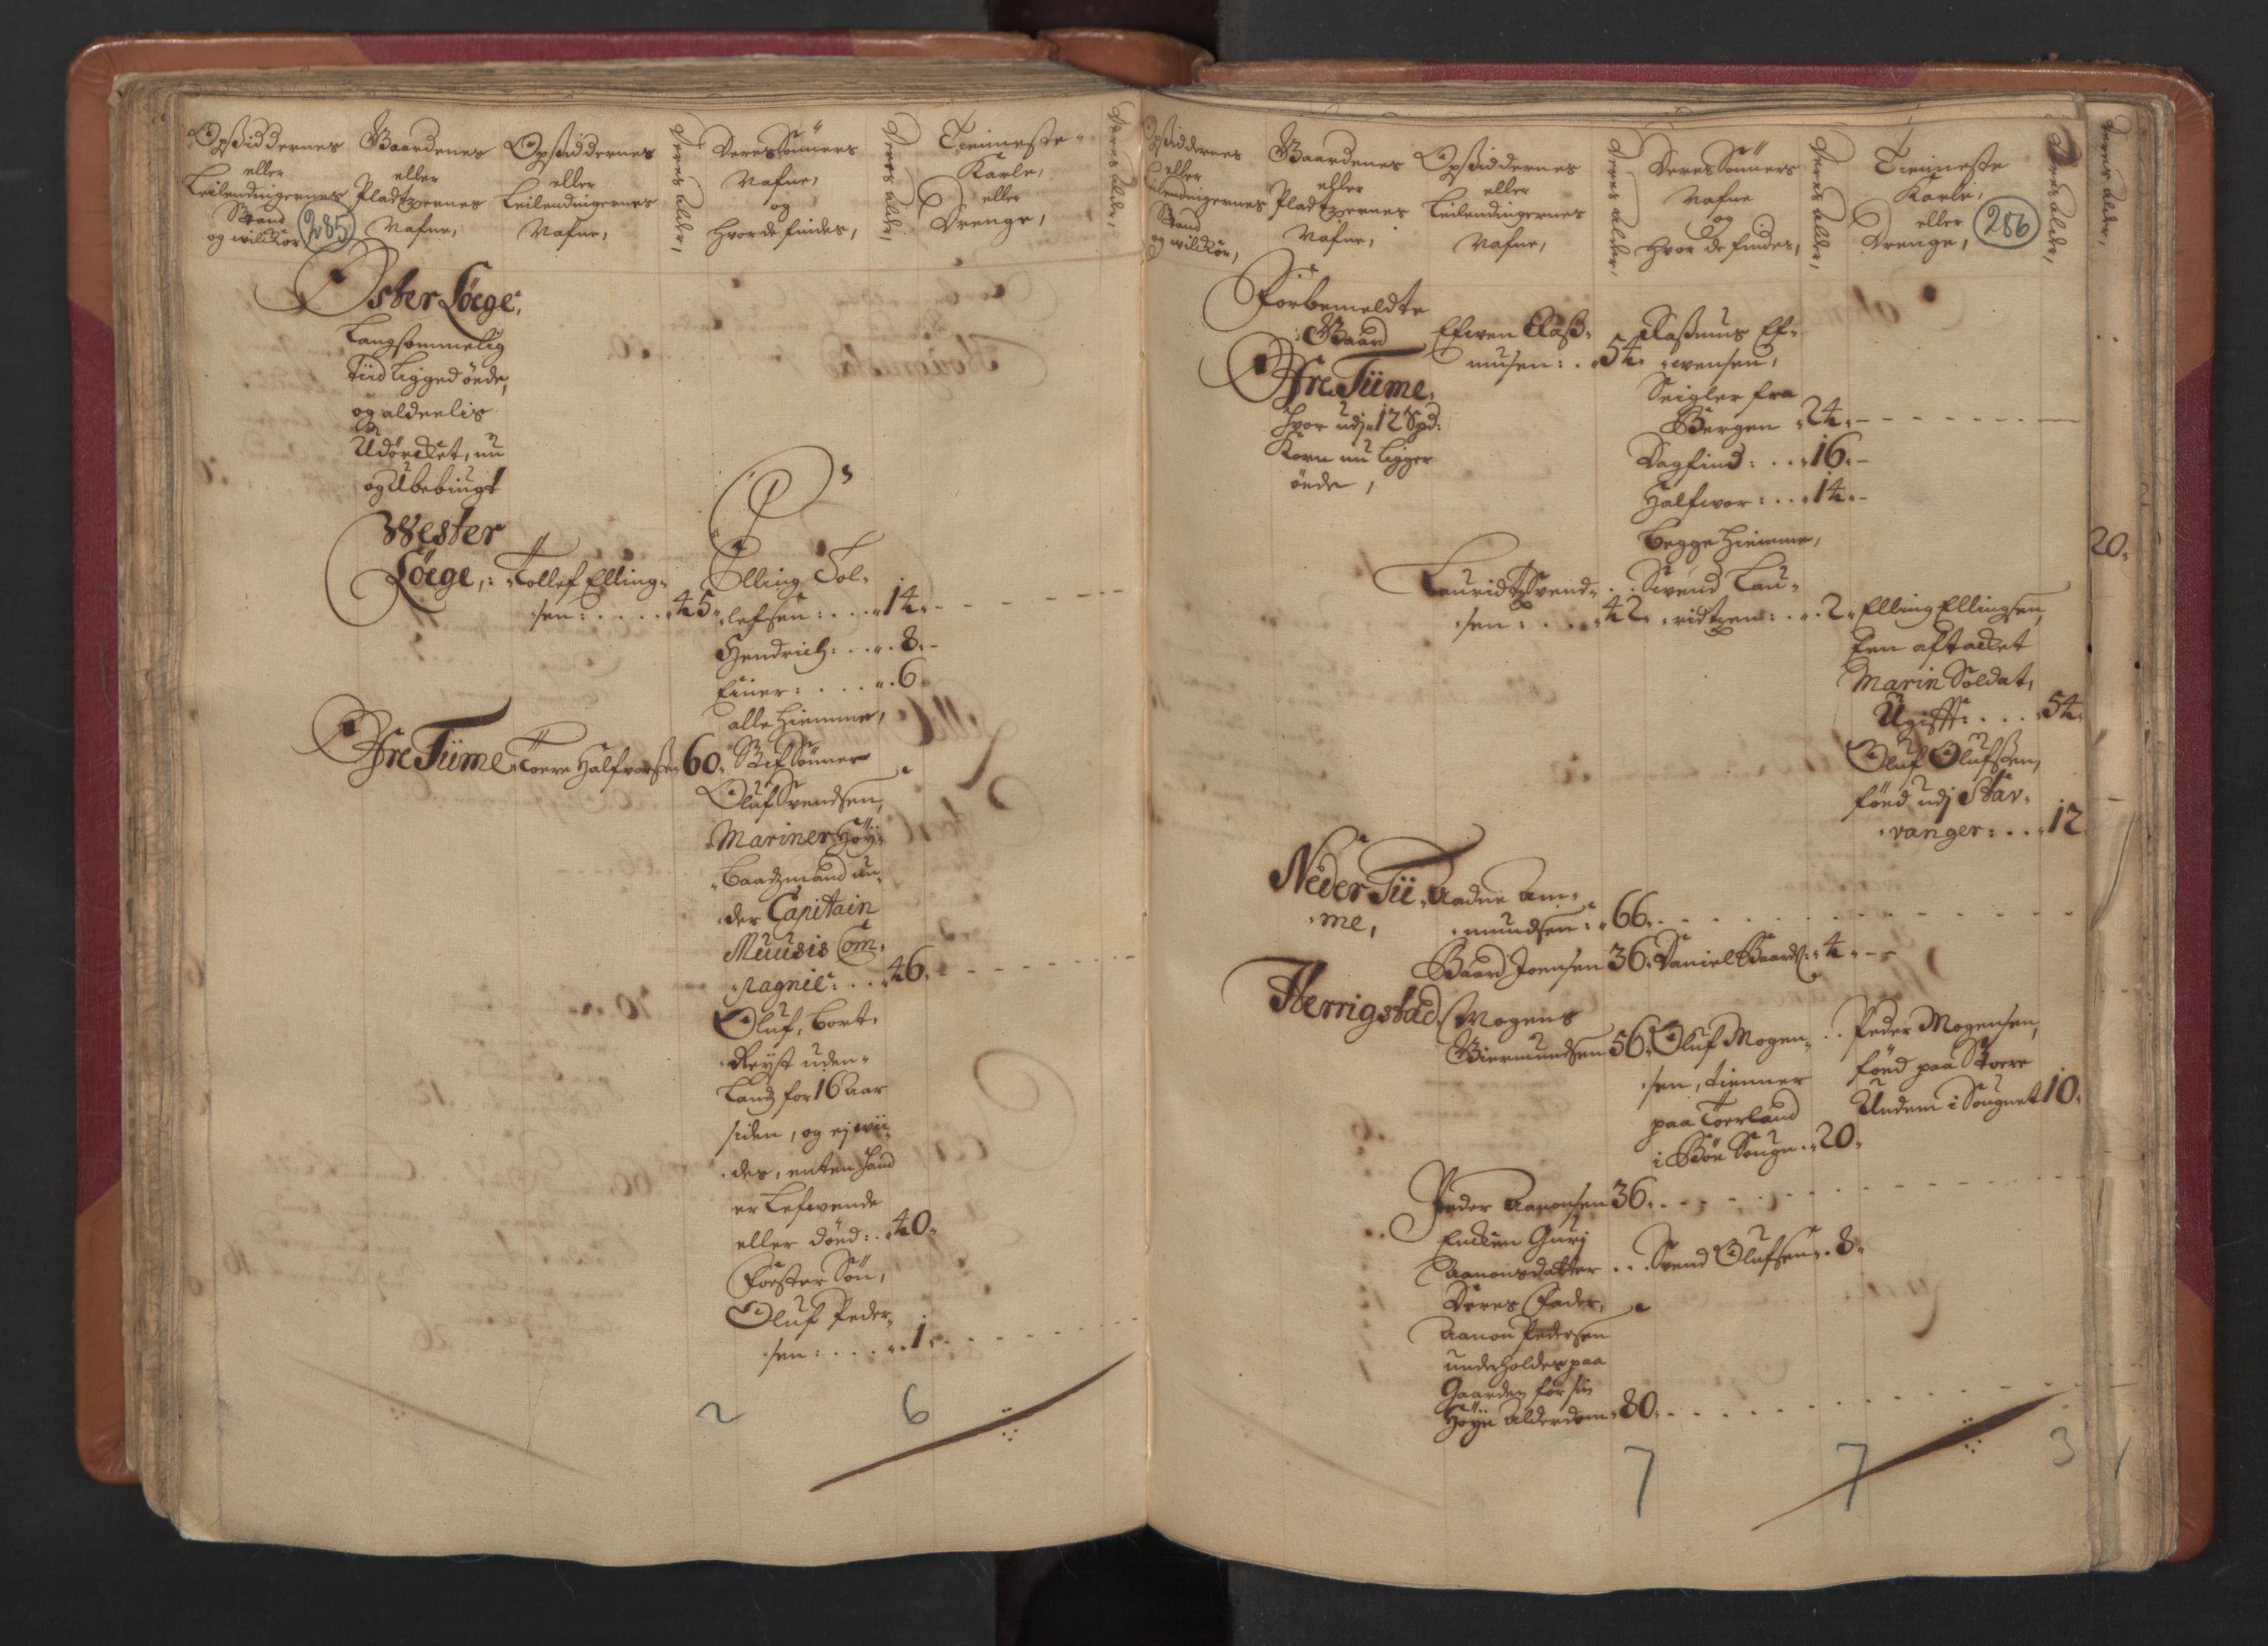 Opsiddernes
eller
Leilendingernes
Stand
og willkor
285
Gaardenes
eller
Pladtzernes
Nafne,
Opsiddernes
eller
Leilendingernes
Nafne,
Deres alder,
Deres Sønners
Nafne,
og
hvor de findes,
Deres alder,
Tienneste-
Karle,
eller
Drenge,
Deres alder,
Øster Løege,
Langsommelig
Tiid ligged øede,
og aldeelis
Udørcket, nu
og Ubebiugt
Wester
Løege,: Tollef Elling-
sen: . . . . 45.
Elling Tol-
lefsen: . . . 14.
Hendrich: . . . 8.
Einer: . . . . 6.
alle hiemme,
Øfre Tiime, Toere Halfvorsen 60.
Stif Sønner
Oluf Svendsen,
Mariner, Høy-
baadzmand un-
der Capitain
Muusis Com-
pagnie: . . . 46.
Oluf, bort-
Reyst uden-
Landz for 16 Aar
siden, og ej wii-
des, enten hand
er Lefwende
eller døed: . . 40.
Foester Søn,
Oluf Peder-
sen: . . . . . 1.
2 6
Opsiddernes
eller
Leilendingernes
Stand
og willkor,
Gaardenes
eller
Pladtzernes
Nafne,
Opsiddernes
eller
Leilendingernes
Nafne,
Deres alder,
Deres Sønners
Nafne
og
Hvor de findes,
Deres alder,
Tienneste
Karle,
eller
Drenge,
286
Deres alder,
Deres alder,
Forbemeldte
Gaard
Øfre Tiime,
hvor udj 12 Spd:
Korn nu ligger
øede,
Efwen Raß-
musen: . . 54.
Raßmus Ef-
wensen,
Seigler fra
Bergen . 24.
Dagfind: . . . 16.
Halfwor: . . . 14.
begge hiemme,
20.
Lauridtz Svend-
sen: . . . . 42.
Swend Lau-
ridtzen: . . . 2.
Elling Ellingsen,
Een aftacket
Marin Soldat,
Ugift: . . . . 54.
Oluf Olufsen,
føed udj Stav-
vanger: . . . 12.
Neder Tii-
me,
Aadne Am-
mundsen: . 66.
Baard Joensen 36. Daniel Baards: . 4.
Herrigstad, Mogens
Biermundsen 56.
Oluf Mogen-
sen, tienner
paa Toerland
i Bøe Sougn . . 20.
Peder Mogensen,
føed paa Stoere
Undem i Sougnet 10.
Peder Aanonsen 36.
Enken Gurj
Aanonsdatter . . . Svend Olufsen . . 8.
Deres Fader,
Aanon Pedersen
underholdes paa
Gaarden for sin
Høye Alderdom . 80.
7 7 3 1